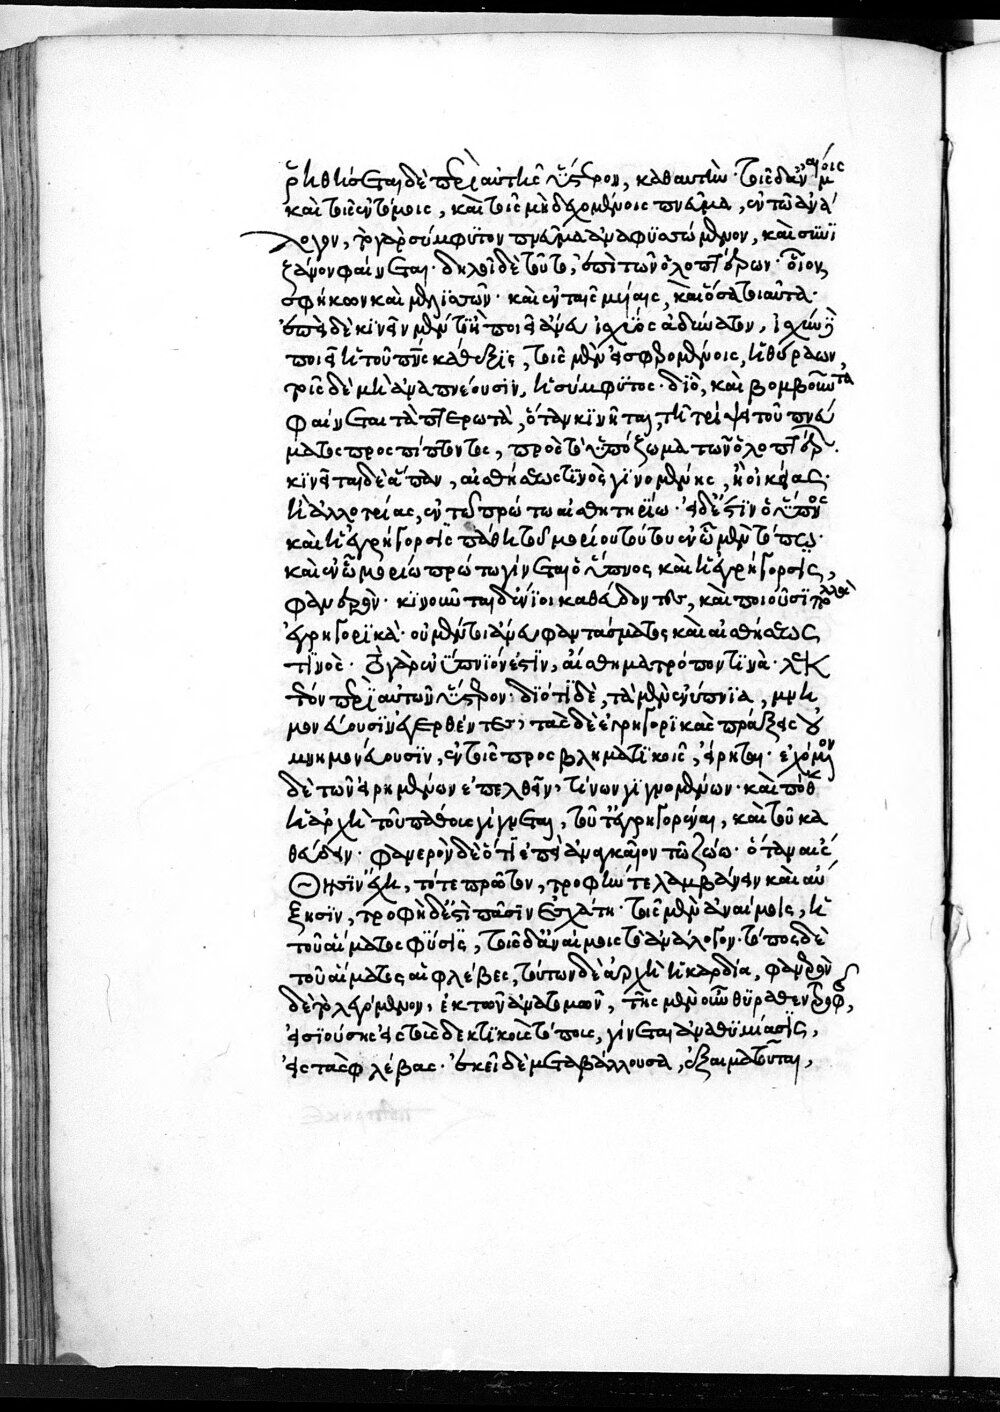 ῥηθήσεται δὲ περὶ αὐτῆς ὕστερον, καθαυτήν· τοῖς δ' ἀναίμοις
καὶ τοῖς ἐντόμοις, καὶ τοῖς μὴ δεχομένοις πνεῦμα, ἐν τῷ ἀνά
λογον, τὸ γὰρ σύμφυτον πνεῦμα ἀναφυσώμενον, καὶ συνι
ζάνον φαίνεται· δηλοῖ δὲ τοῦτο, ἐπὶ τῶν ὁλοπτέρων· οἷον
σφηκῶν καὶ μελισσῶν· καὶ ἐν ταῖς μυίαις, καὶ ὅσα τοιαῦτα·
ἐπεὶ δὲ κινεῖν μέν τι ἢ ποιεῖν ἄνευ ἰσχύος ἀδύνατον, ἰσχὺν δὲ
ποιεῖ ἡ τοῦ πνεύματος κάθεξις, τοῖς μὲν εἰσφερομένοις, ἡ θύραθεν,
τοῖς δὲ μὴ ἀναπνέουσιν, ἡ σύμφυτος· διὸ, καὶ βομβοῦντα
φαίνεται τὰ πτερωτὰ, ὅταν κινῆται, τῇ τρίψει τοῦ πνεύ
ματος προσπίπτοντος, πρὸς τὸ ὑπόζωμα τῶν ὁλοπτέρων.
κινεῖται δὲ ἅπαν, αἰσθήσεώς τινος γινομένης, ἢ οἰκείας·
ἢ ἀλλοτρίας, ἐν τῷ πρώτῳ αἰσθητηρίῳ· εἰ δέ ἐστιν ὁ ὕπνος
καὶ ἡ ἐγρήγορσις πάθη τοῦ μορίου τούτου ἐν ᾧ μὲν τόπῳ·
καὶ ἐν ᾧ μορίῳ πρώτῳ γίνεται ὁ ὕπνος καὶ ἡ ἐγρήγορσις,
φανερόν· κινοῦνται δ' ἔνιοι καθεύδοντες, καὶ ποιοῦσι πολλὰ
ἐγρηγορικά· οὐ μέντοι ἄνευ φαντάσματος καὶ αἰσθήσεώς
τινος· τὸ γὰρ ἐνύπνιόν ἐστιν, αἴσθημα τρόπον τινά· λεκ
τέον περὶ αὐτῶν ὕστερον· διότι δὲ, τὰ μὲν ἐνύπνια, μνη
μονεύουσιν ἐγερθέντες, τὰς δὲ ἐγρηγορικὰς πράξεις οὐ
μνημονεύουσιν, ἐν τοῖς προβληματικοῖς, εἴρηται· ἐχόμενον
δὲ τῶν εἰρημένων ἐπελθεῖν, τίνων γιγνομένων· καὶ πόθεν
ἡ ἀρχὴ τοῦ πάθους γίγνεται, τοῦ τ' ἐγρηγορέναι, καὶ τοῦ κα
θεύδειν· φανερὸν δὲ ὅτι ἐπεὶ ἀναγκαῖον τῷ ζώῳ· ὅταν αἴσ
θησιν ἔχῃ, τότε πρῶτον, τροφήν τε λαμβάνειν καὶ αὔ
ξησιν, τροφὴ δ' ἐστὶ πᾶσιν ἐσχάτη· τοῖς μὲν ἐναίμοις, ἡ
τοῦ αἵματος φύσις, τοῖς δ' ἀναίμοις τὸ ἀνάλογον· τόπος δὲ
τοῦ αἵματος αἱ φλέβες, τούτων δὲ ἀρχὴ ἡ καρδία, φανερὸν
δὲ τὸ λεγόμενον, ἐκ τῶν ἀνατομῶν, τῆς μὲν οὖν θύραθεν τροφῆς,
εἰσιούσης εἰς τοὺς δεκτικοὺς τόπους, γίνεται ἀναθυμίασις,
εἰς τὰς φλέβας· ἐκεῖ δὲ μεταβάλλουσα, ἐξαιματοῦται,